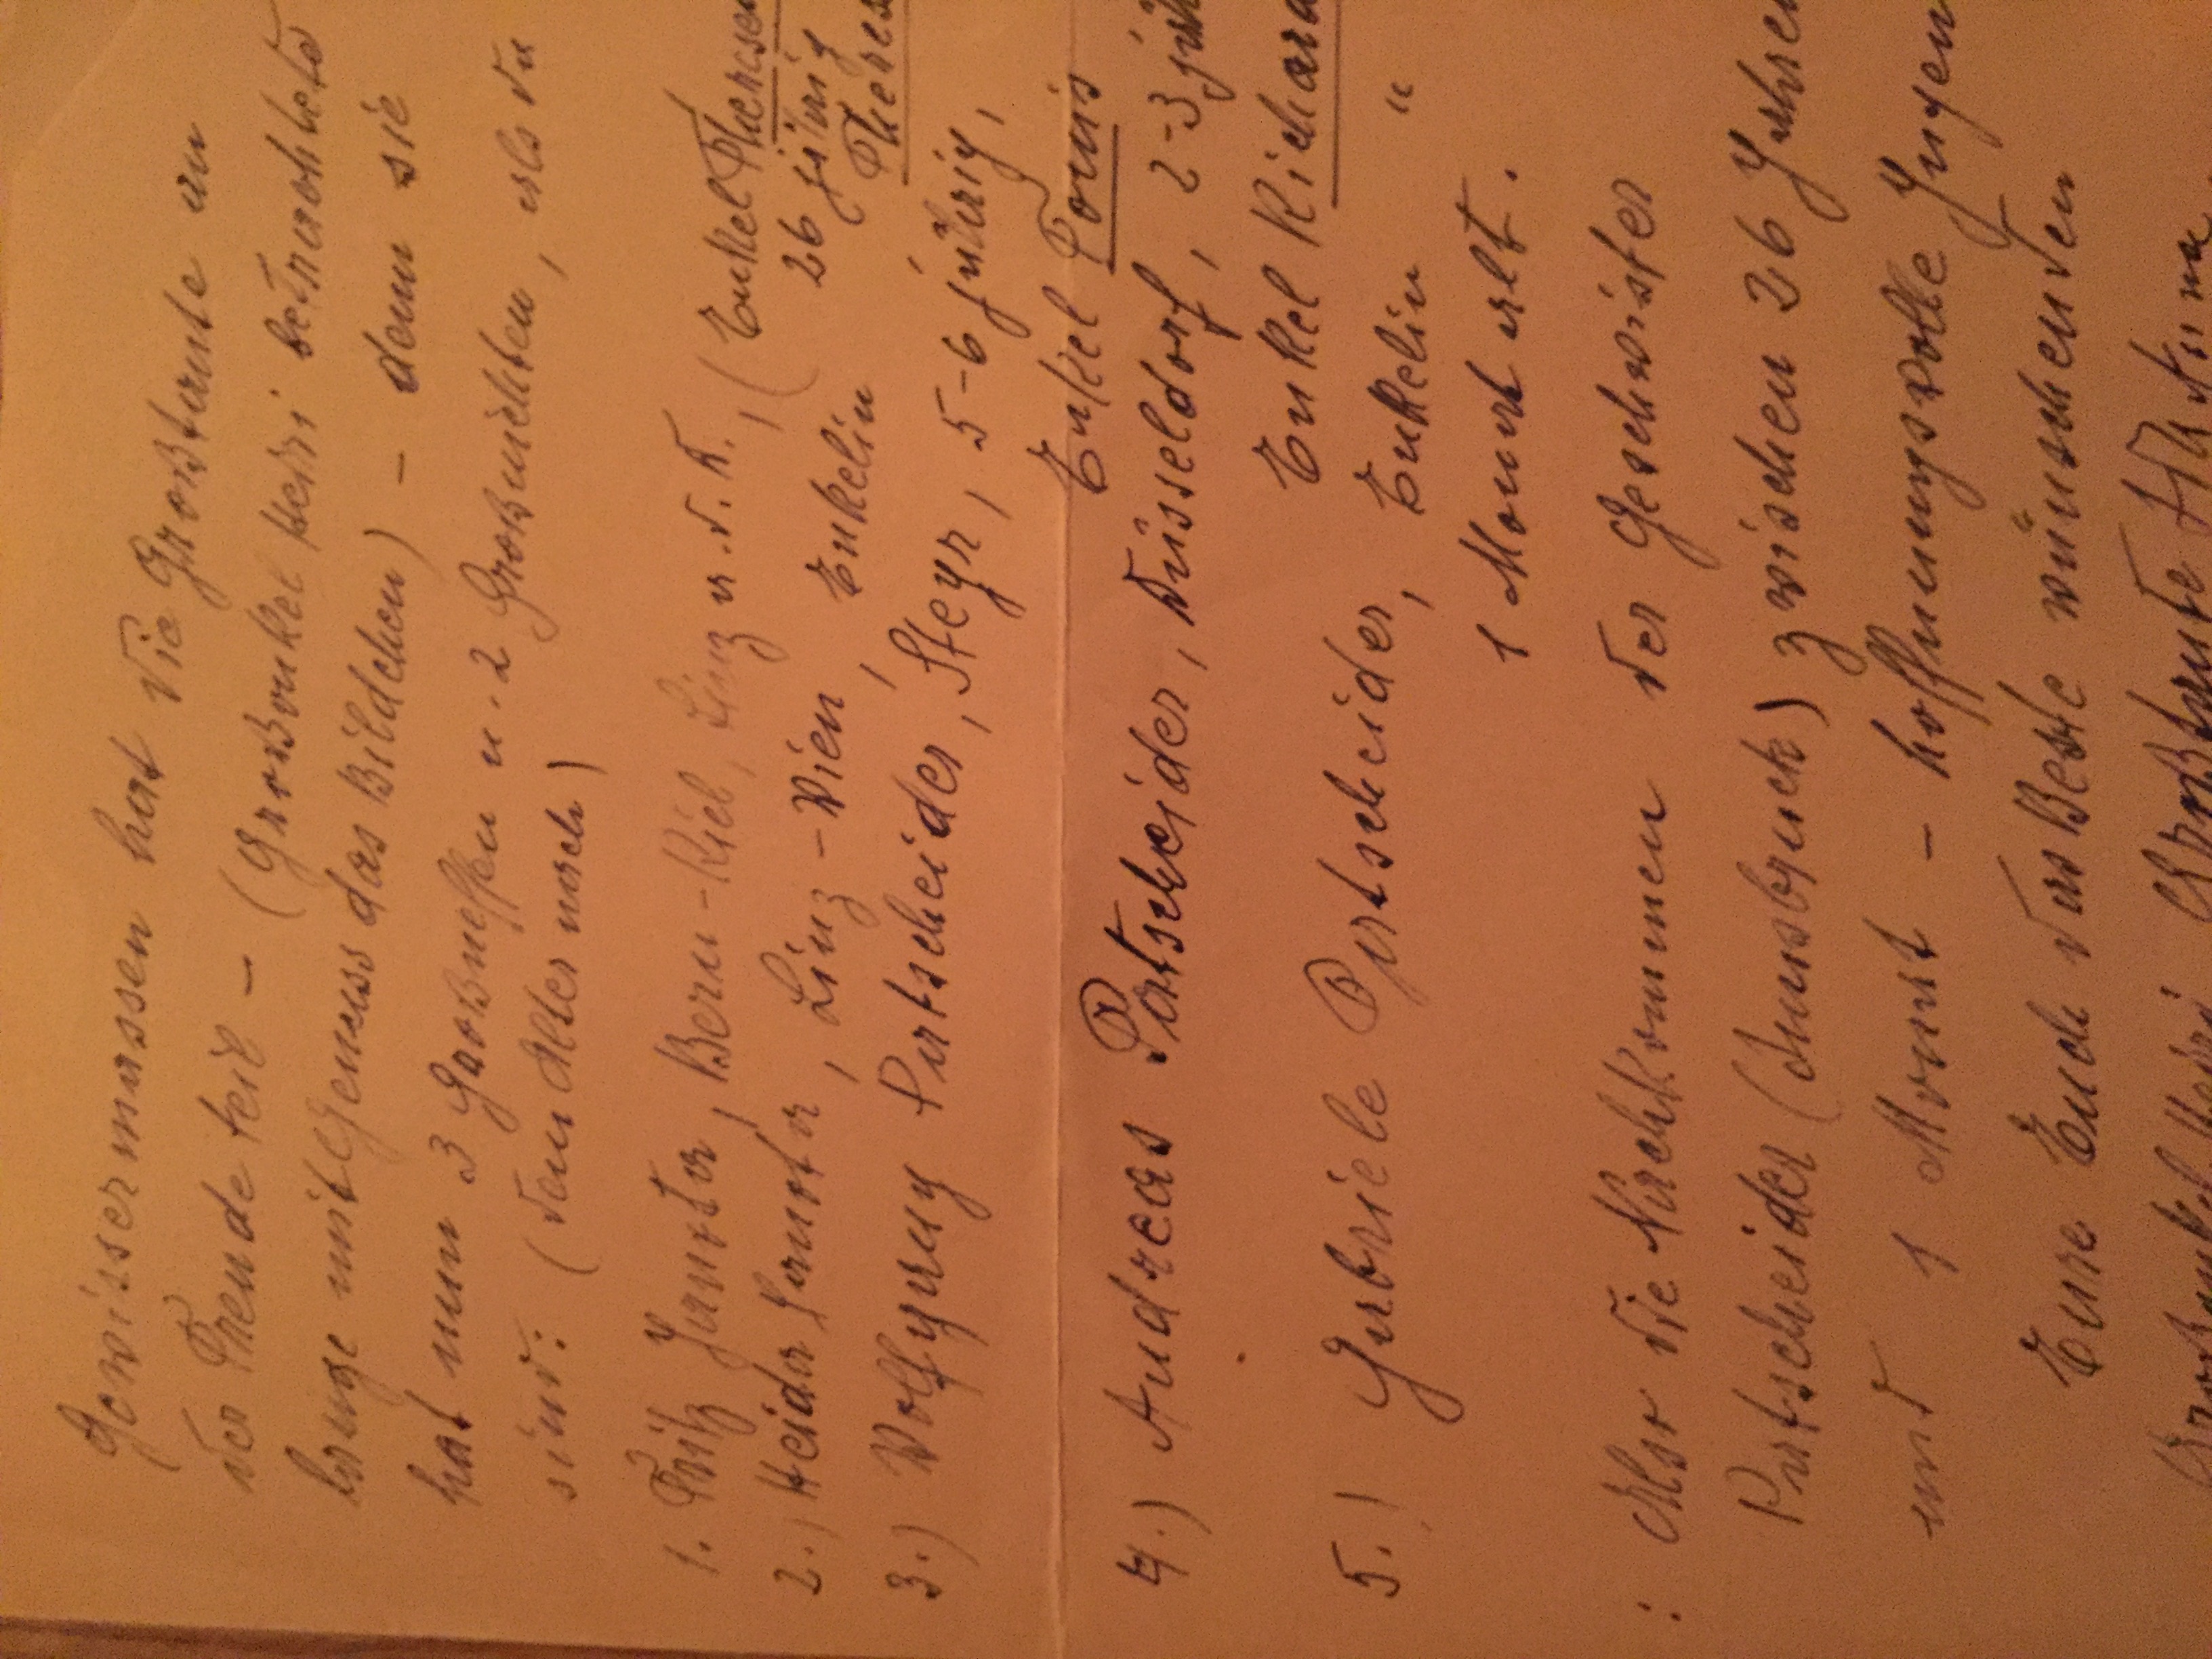 Gewissermassen hat die Grosstante an
der Freude teil – (Grossonkel Heini betrachtete
lange mit Genuss das Bildchen) – denn sie
hat nun 3 Grossneffen u. 2 Grossnichten, als da
sind: (dem Alter nach)
1. Fritz Janota, Bern-Kiel, Linz u.s.f., (Enkel Therese
26 jährig
2.) Heida Janota, Linz-Wien, Enkelin There
3.) Wolfgang Partscheider, Steyr, 5-6 jährig,
Enkel
4.) Andreas Partscheider, Düsseldorf, 2-3 jäh
Enkel Richard
5.) Gabriele Partscheider, Enkelin "
1 Monat alt.
: Also die Nachkommen der Geschwister
Partscheider (Innsbruck) zwischen 26 Jahren
und 1 Monat – hoffnungsvolle Jugend
Eure Euch das Beste wünschenden
Grossonkel Heini Grosstante